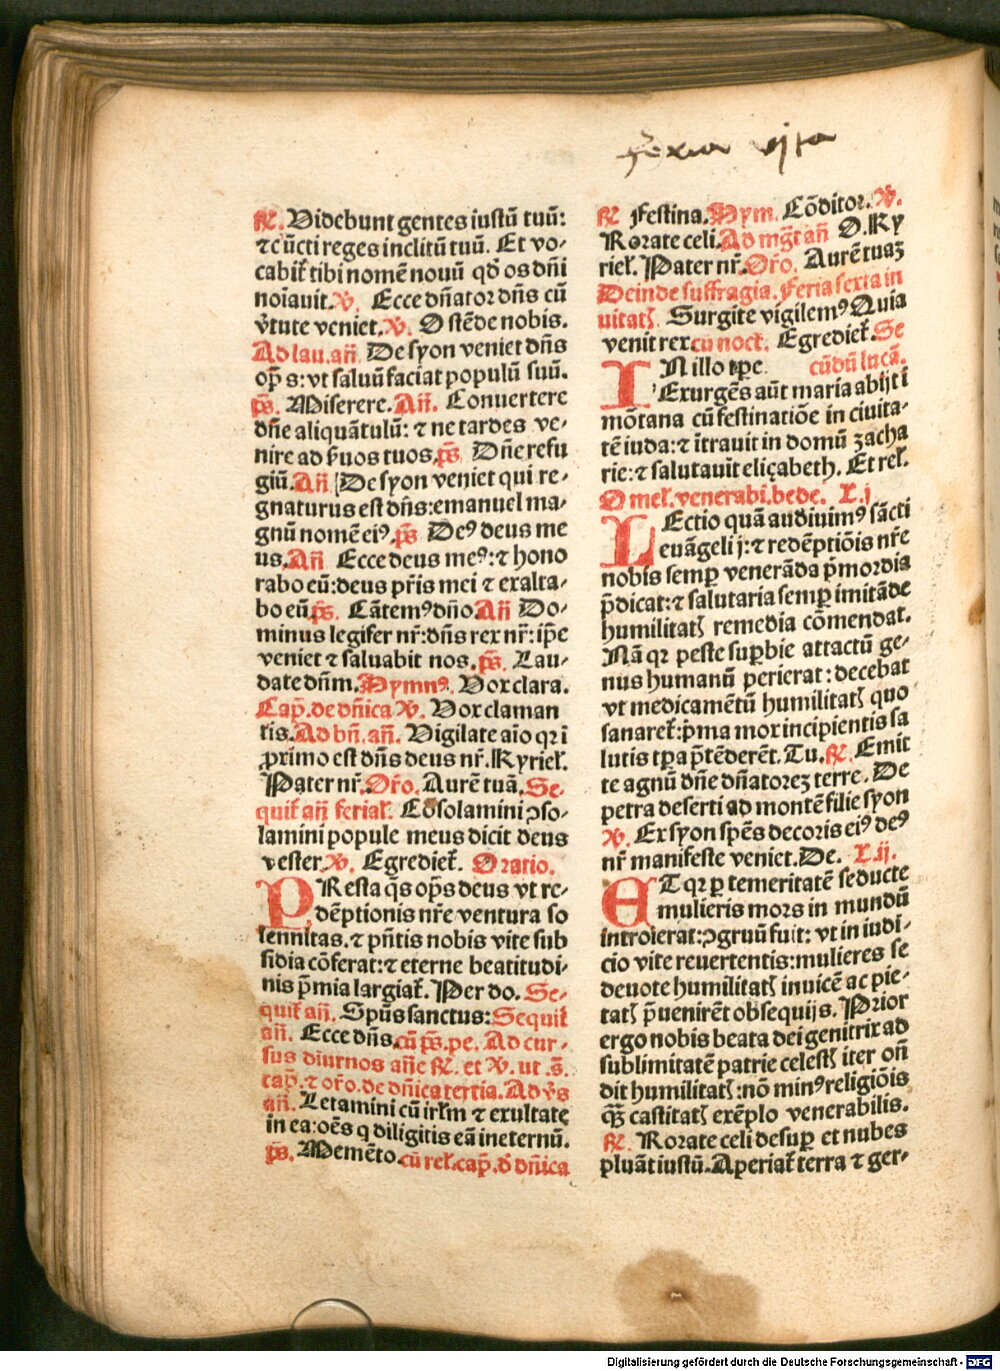 feria vjta
℟. Videbunt gentes iustū tuū:
⁊ cūcti reges inclitū tuū. Et vo⸗
cabiť tibi nomē nouū qđ os dn̄i
noīauit. ℣. Ecce dn̄ator dn̄s cū
v̓tute veniet. ℣. Ostēde nobis.
Ad lau. an̄. De syon veniet dn̄s
op̄s: vt saluū faciat populū suū.
ps̄. Miserere. An̄. Conuertere
dn̄e aliquātulū: ⁊ ne tardes ve⸗
nire ad ẜuos tuos. ps̄ Dn̄e refu
giū. An̄ De syon veniet qui re⸗
gnaturus est dn̄s: emanuel ma⸗
gnū nomē eiꝰ. ps̄ Deꝰ deus me
us. An̄ Ecce deus meꝰ: ⁊ hono
rabo eū: deus pr̄is mei ⁊ exalta⸗
bo eū. ps̄. Cātemꝰ dn̄o. An̄ Do⸗
minus legifer nr̄: dn̄s rex nr̄: ip̄e
veniet ⁊ saluabit nos. ps̄. Lau⸗
date dn̄m. Hymnꝰ. Vox clara.
Cap̄. de dn̄ica ℣. Vox claman
tis. Ad bn̄. an̄. Vigilate aīo qꝛ ī
ꝓrimo est dn̄s deus nr̄. Kyrieł.
Pater nr̄. Or̄o. Aurē tuā. Se⸗
quiť an̄ ferial̓. Cōsolamini ꝯso⸗
lamini popule meus dicit deus
vester. ℣. Egredieť. Oratio.
PResta q̄s op̄s deus vt re⸗
dēptionis nr̄e ventura so
lennitas. ⁊ pn̄tis nobis vite sub
sidia cōferat: ⁊ eterne beatitudi⸗
nis p̄mia largiať. Per do. Se⸗
quiť an̄. Spūs sanctus: Sequiť
an̄. Ecce dn̄s. cū ps̄. pe. Ad cur⸗
sus diurnos an̄e ℟. et ℣. ut s̄.
cap̄. ⁊ or̄o. de dn̄ica tertia. Ad v̓s
an̄. Letamini cū irłm ⁊ exultate
in ea: oēs q diligitis eā ineternū.
ps̄. Memēto. cū rel̓. cap̄. đ dn̄ica
℟ Festina. Hym. Cōditor. ℣.
Rorate celi. Ad mḡt an̄ O. Ky
rieł. Pater nr̄. Or̄o. Aurē tuaꝫ
Deinde suffragia. Feria sexta in
uitatꝭ. Surgite vigilemꝰ Quia
venit rex cū nocť. Egredieť. Se
cūdū lucā.
IN illo tꝑe
Exurgēs aūt maria abijt ī
mōtana cū festinatiōe in ciuita⸗
tē iuda: ⁊ ītrauit in domū zacha
rie: ⁊ salutauit eliçabeth. Et rel̓.
O mel̓. venerabi. bede. L. j
LEctio quā audiuimꝰ sācti
euāgelij: ⁊ redēptiōis nr̄e
nobis semꝑ venerāda p̄mordia
p̄dicat: ⁊ salutaria semꝑ imitāde
humilitatꝭ remedia cōmendat.
Nā qꝛ peste suꝑbie attactū ge⸗
nus humanū perierat: decebat
vt medicamētū humilitatꝭ quo
sanareť: pͥma mox incipientis sa
lutis tꝑa p̄tēderēt. Tu. ℟. Emit
te agnū dn̄e dn̄atoreꝫ terre. De
petra deserti ad montē filie syon
℣. Ex syon sp̄es decoris eiꝰ deꝰ
nr̄ manifeste veniet. De. L. ij.
ET qꝛ ꝑ temeritatē seducte
mulieris mors in mundū
introierat: ꝯgruū fuit: vt in iudi⸗
cio vite reuertentis: mulieres se
deuote humilitatꝭ inuicē ac pie⸗
tatꝭ p̄uenirēt obsequijs. Prior
ergo nobis beata dei genitrix ad
sublimitatē patrie celestꝭ iter on̄
dit humilitatꝭ: nō minꝰ religiōis
qꝫ̄ castitatꝭ exēplo venerabilis.
℟. Rorate celi desuꝑ et nubes
pluāt iustū. Aperiať terra ⁊ ger⸗
Digitalisierung gefördert durch die Deutsche Forschungsgemeinschaft - DFG